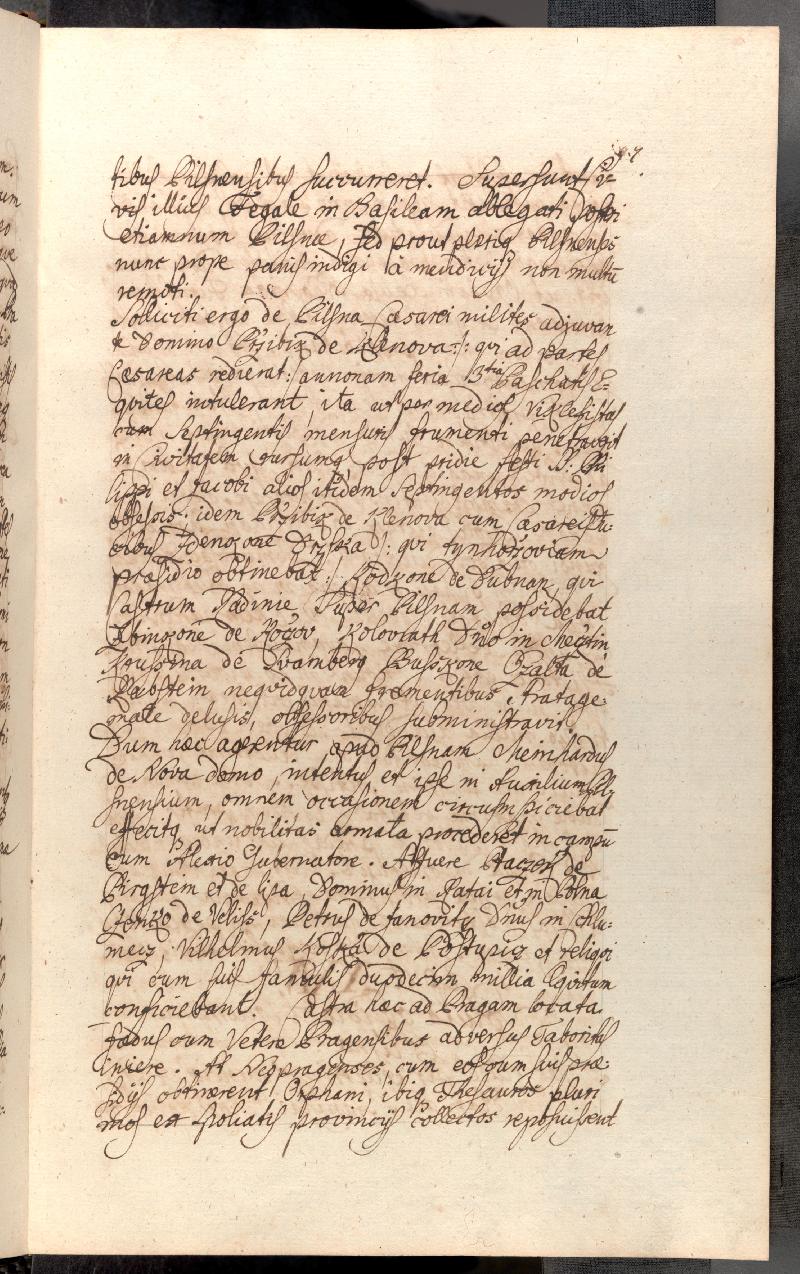 tibus Pilsnensibus succurreret. Supersunt
vis illius Legale in Basileam ablegati
etiamnum Pilsnæ, sed prout pleriq Pilsnenses
nunc prope panis indigi à mendicijs non multũ
remoti.
Solliciti ergo de Pilsna Cæsarei milites adjuvan
te Domino Przibix de Klenova :/: qui ad partes
Cæsareas redierat :/ annonam feria 3tia Paschatis E-
quites intulerant, ita ut per medios Viklefistas
cum Septingentis mensuris frumenti penetravit
in Civitatem rursumq post pridie festi S: Phi
lippi et Jacobi alios itidem septingentos modios
obsessis: idem Przibix de Klenova cum Cæsareis
Zdenkone Drzka /: qui tynhorzoviam
præsidio obtinebat :/ Kodzone de Dubnan, qui
Castrum Radinie super Pilsnam possidebat
Zbinkone de Koczov, Kolovrath Dno in Mecztin
Krussina de Svamberg Busskone Czalta de
Rabstein nequidquam frementibus, stratage-
mate delusis, obsessoribus subministravit.
Dum hæc agerentur apud Pilsnam Meinhardus
de Nova domo, intentus et ipse in Auxilium Pil
snensium, omnem occasionem circumspiciebat
effecitq, ut nobilitas armata procederet in campũ
cum Alexio Gubernatore. Affuere Ptaczon de
Pirgstein et de lipa, Dominus in Ratai et in Polna
Czenko de Veliss, Petrus de Janovitz Dnus in Chlu-
mecz, Vilhelmus Kostka de Postupicz et reliqui
qui cum suis famulis duodecim millia Equitum
conficiebant. Castra hæc ad Pragam locata
fædus cum Vetero Pragensibus adversus Taboritas
iniere. At Neopragenses, cum eos cum suis præ-
sidijs obtinerent Orphani, ibiq Thesauros pluri
mos ex spoliatis provincijs collectos reposuissent